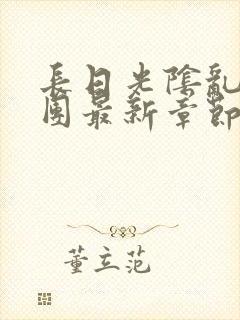 長日光陰亂
團最新章節
董立范